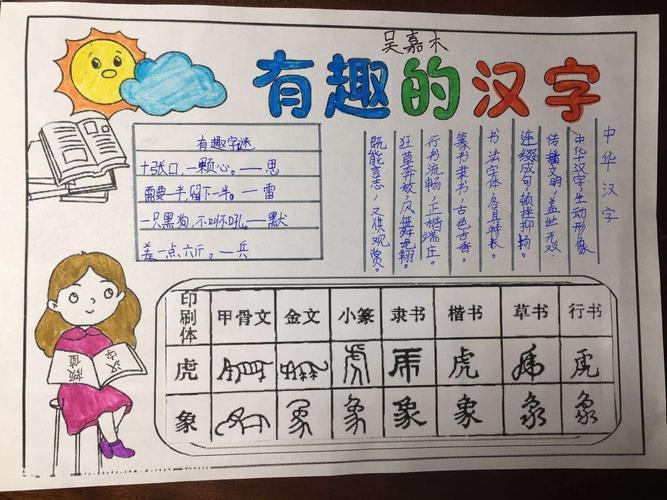 吴嘉木
有趣的汉字
有趣字谜
十张口,一颗心。——思
需要一半,留下一半。——雷
一只黑狗,不叫不吼。——默
差一点六斤。——兵
中华汉字
中华汉字,生动形象
传播文明,盖世无双。
连缀成句,顿挫抑扬。
书法字体,各具特长。
篆书隶书,古色古香。
行书流畅,正楷端庄。
狂草奔放,凤舞龙翔。
既能言志,又供观赏。
印刷体 甲骨文 金文 小篆 隶书 楷书 草书 行书
虎 虎 虎 虎 虎 虎 虎 虎
象 象 象 象 象 象 象 象
汉字